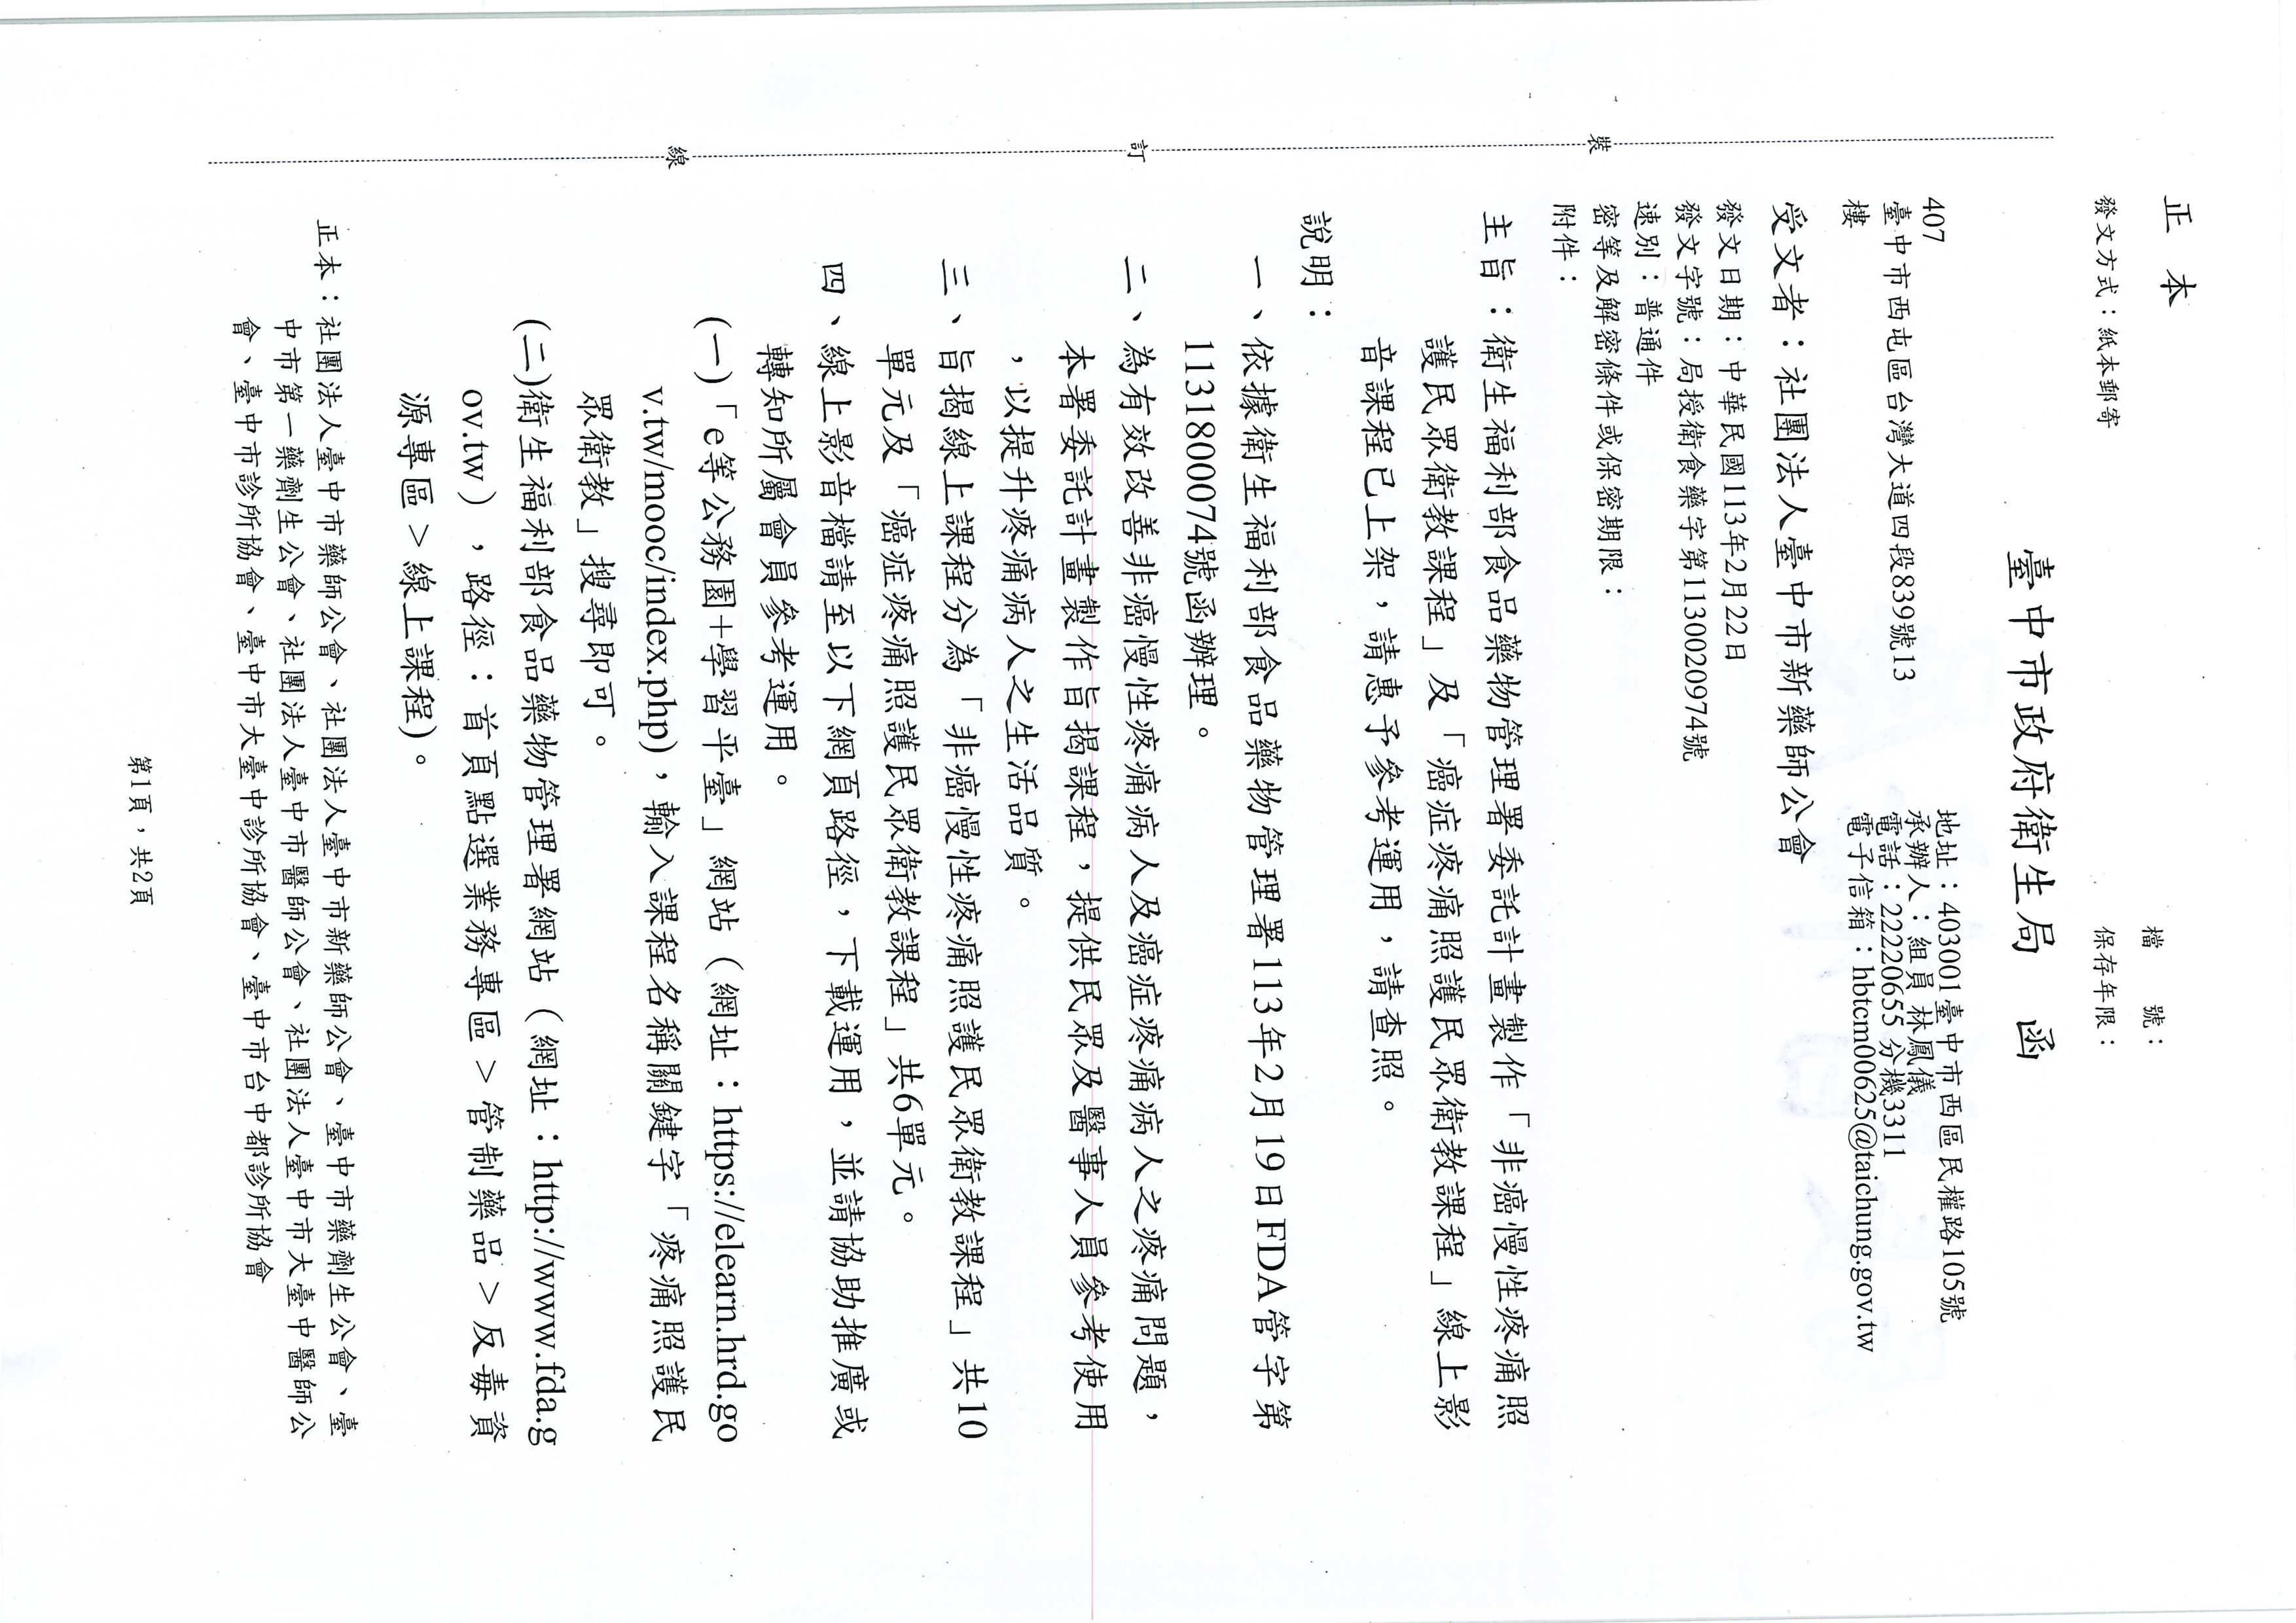 正本
發文方式：紙本郵寄
檔　　號：
保存年限：
臺中市政府衛生局　函
地址：403001臺中市西區民權路105號
承辦人：組員 林鳳儀
電話：22220655 分機3311
電子信箱：hbtcm00625@taichung.gov.tw
407
臺中市西屯區台灣大道四段839號13
樓
受文者：社團法人臺中市新藥師公會
發文日期：中華民國113年2月22日
發文字號：局授衛食藥字第1130020974號
速別：普通件
密等及解密條件或保密期限：
附件：
主旨：衛生福利部食品藥物管理署委託計畫製作「非癌慢性疼痛照
護民眾衛教課程」及「癌症疼痛照護民眾衛教課程」線上影
音課程已上架，請惠予參考運用，請查照。
說明：
一、依據衛生福利部食品藥物管理署113年2月19日FDA管字第
1131800074號函辦理。
二、為有效改善非癌慢性疼痛病人及癌症疼痛病人之疼痛問題，
本署委託計畫製作旨揭課程，提供民眾及醫事人員參考使用
，以提升疼痛病人之生活品質。
三、旨揭線上課程分為「非癌慢性疼痛照護民眾衛教課程」共10
單元及「癌症疼痛照護民眾衛教課程」共6單元。
四、線上影音檔請至以下網頁路徑，下載運用，並請協助推廣或
轉知所屬會員參考運用。
(一)「e等公務園+學習平臺」網站（網址：https://elearn.hrd.go
v.tw/mooc/index.php)，輸入課程名稱關鍵字「疼痛照護民
眾衛教」搜尋即可。
(二)衛生福利部食品藥物管理署網站（網址：http://www.fda.g
ov.tw），路徑：首頁點選業務專區＞管制藥品＞反毒資
源專區＞線上課程)。
正本：社團法人臺中市藥師公會、社團法人臺中市新藥師公會、臺中市藥劑生公會、臺
中市第一藥劑生公會、社團法人臺中市醫師公會、社團法人臺中市大臺中醫師公
會、臺中市診所協會、臺中市大臺中診所協會、臺中市台中都診所協會
第1頁，共2頁
裝
訂
線